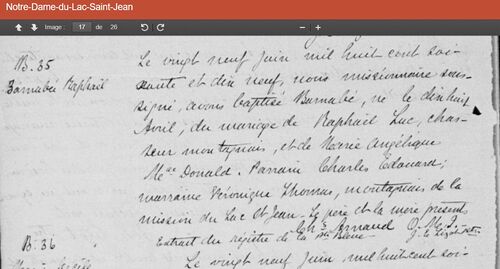 Notre-Dame-du-Lac-Saint-Jean
Image : 17 de 26
B. 35
Barnabé Raphaël
Le vingt neuf Juin mil huit cent soi-
xante et dix neuf, nous missionnaire sous-
signé, avons baptisé Barnabé, né le dix huit
Avril, du mariage de Raphaël Luc, chas-
seur montagnais, et de Marie Angélique
Mac Donald. Parrain Charles Edouard;
marraine Véronique Thomas, montagnais de la
mission du Lac St Jean. Le père et la mère présents
Chs Arnaud O.M.I.
Extrait du régistre de la Pte Bleue.
B. 36
Le vingt neuf Juin mil huit cent soi-